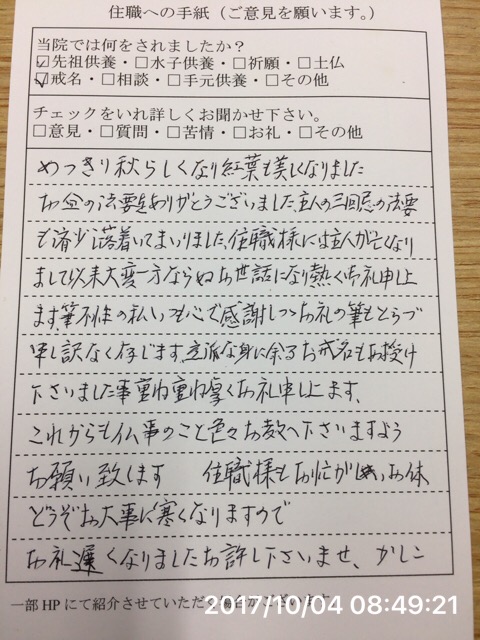 住職への手紙（ご意見を願います。）
当院では何をされましたか？
☑先祖供養・□水子供養・□祈願・□土仏
☑戒名・□相談・□手元供養・□その他
チェックをいれ詳しくお聞かせ下さい。
□意見・□質問・□苦情・□お礼・□その他
めっきり秋らしくなり紅葉も美しくなりました
お盆の法要ありがとうございました主人の三回忌の法要
も済少し落着いてまいりました、住職様には主人が亡くなり
まして以来大変一方ならぬお世話になり熱く御礼申上
ます、筆不性の私いつも心で感謝しつつお礼の筆もとらづ
申し訳なく存じます、立派な身に余るお戒名もお授け
下さいました事重ね重ね厚くお礼申し上ます、
これからも仏事のこと色々お教へ下さいますよう
お願い致します 住職様もお忙がしい、お体
どうぞお大事に寒くなりますので
お礼遅くなりましたお許し下さいませ、かしこ
一部HPにて紹介させていただく場合がございます
2017/10/04 08:49:21